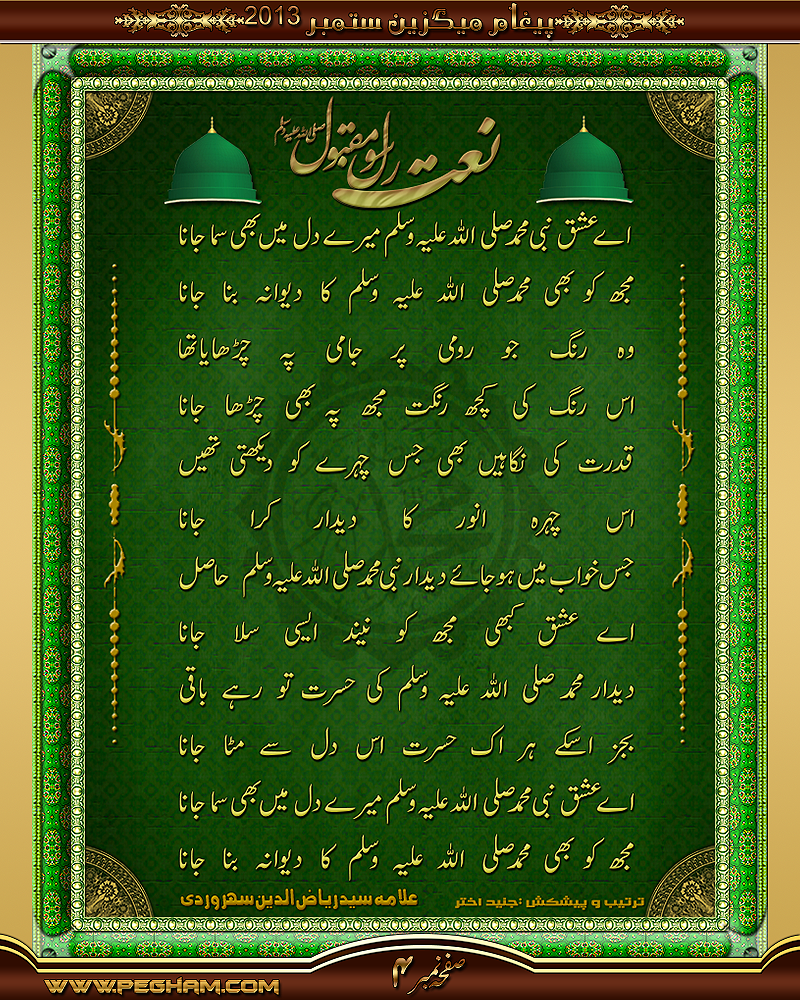 پیغام میگزین ستمبر 2013
نعت رسول مقبول صلی اللہ علیہ وسلم
اے عشق نبی محمد صلی اللہ علیہ وسلم میرے دل میں بھی سما جانا
مجھ کو بھی محمد صلی اللہ علیہ وسلم کا دیوانہ بنا جانا
وہ رنگ جو رومی پر جامی پہ چڑھایا تھا
اس رنگ کی کچھ رنگت مجھ پہ بھی چڑھا جانا
قدرت کی نگاہیں بھی جس چہرے کو دیکھتی تھیں
اس چہرہ انور کا دیدار کرا جانا
جس خواب میں ہوجائے دیدار نبی محمد صلی اللہ علیہ وسلم حاصل
اے عشق کبھی مجھ کو نیند ایسی سلا جانا
دیدار محمد صلی اللہ علیہ وسلم کی حسرت تو رہے باقی
بجز اسکے ہر اک حسرت اس دل سے مٹا جانا
اے عشق نبی محمد صلی اللہ علیہ وسلم میرے دل میں بھی سما جانا
مجھ کو بھی محمد صلی اللہ علیہ وسلم کا دیوانہ بنا جانا
ترتیب و پیشکش :جنید اختر علامہ سید ریاض الدین سہروردی
صفحہ نمبر ۳
WWW.PEGHAM.COM